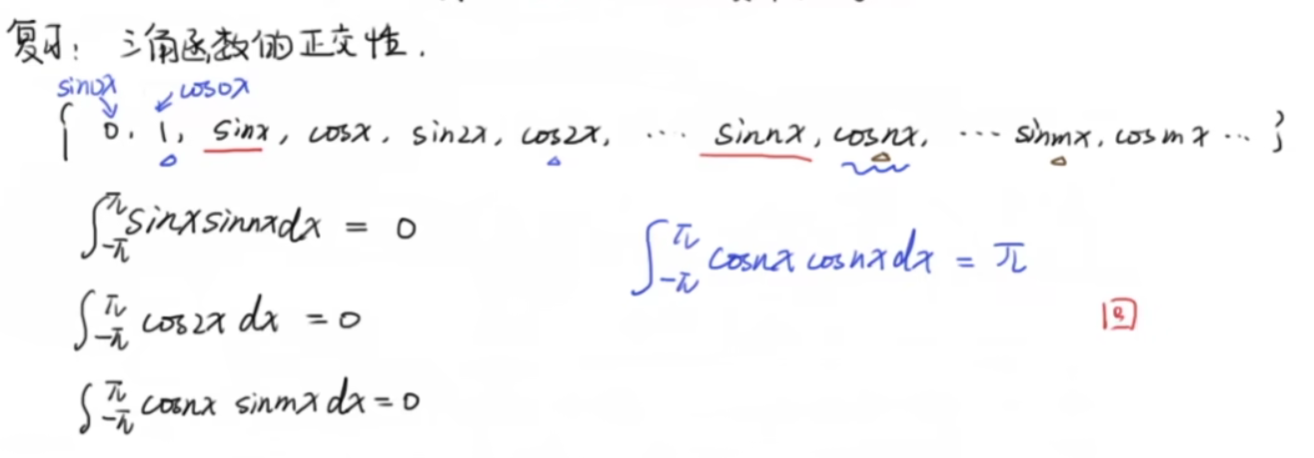 复习: 三角函数的正交性.
sin0x cos0x
{ 0, 1, sinx, cosx, sin2x, cos2x, ⋯ sinnx, cosnx, ⋯ sinmx, cosmx ⋯ }
∫_{-π}^{π} sinx sinnx dx = 0
∫_{-π}^{π} cosnx cosnx dx = π
∫_{-π}^{π} cos2x dx = 0
∫_{-π}^{π} cosnx sinmx dx = 0